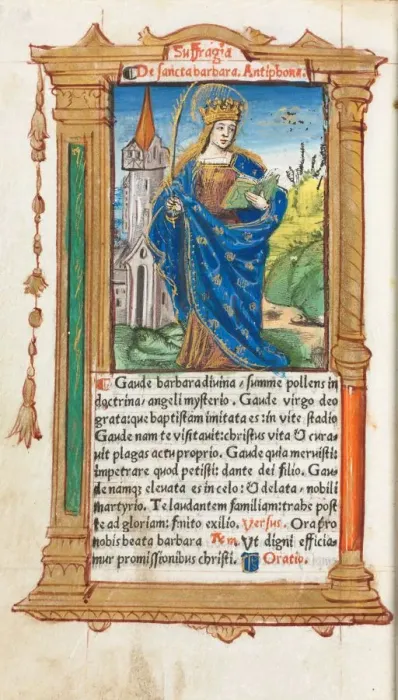 Suffragia
De sancta barbara. Antiphona.
Gaude barbara diuina / summe pollens in
doctrina / angeli mysterio . Gaude virgo deo
grata : que baptistam imitata es : in vite stadio
Gaude nam te visitauit : christus vita & cura-
uit plagas actu proprio. Gaude quia meruisti :
impetrare quod petisti : dante dei filio. Gau-
de namq; eleuata es in celo : & delata / nobili
martyrio. Te laudantem familiam : trahe post
te ad gloriam : finito exilio. Versus. Ora pro
nobis beata barbara Rem. Vt digni efficia-
mur promissionibus christi. Oratio.